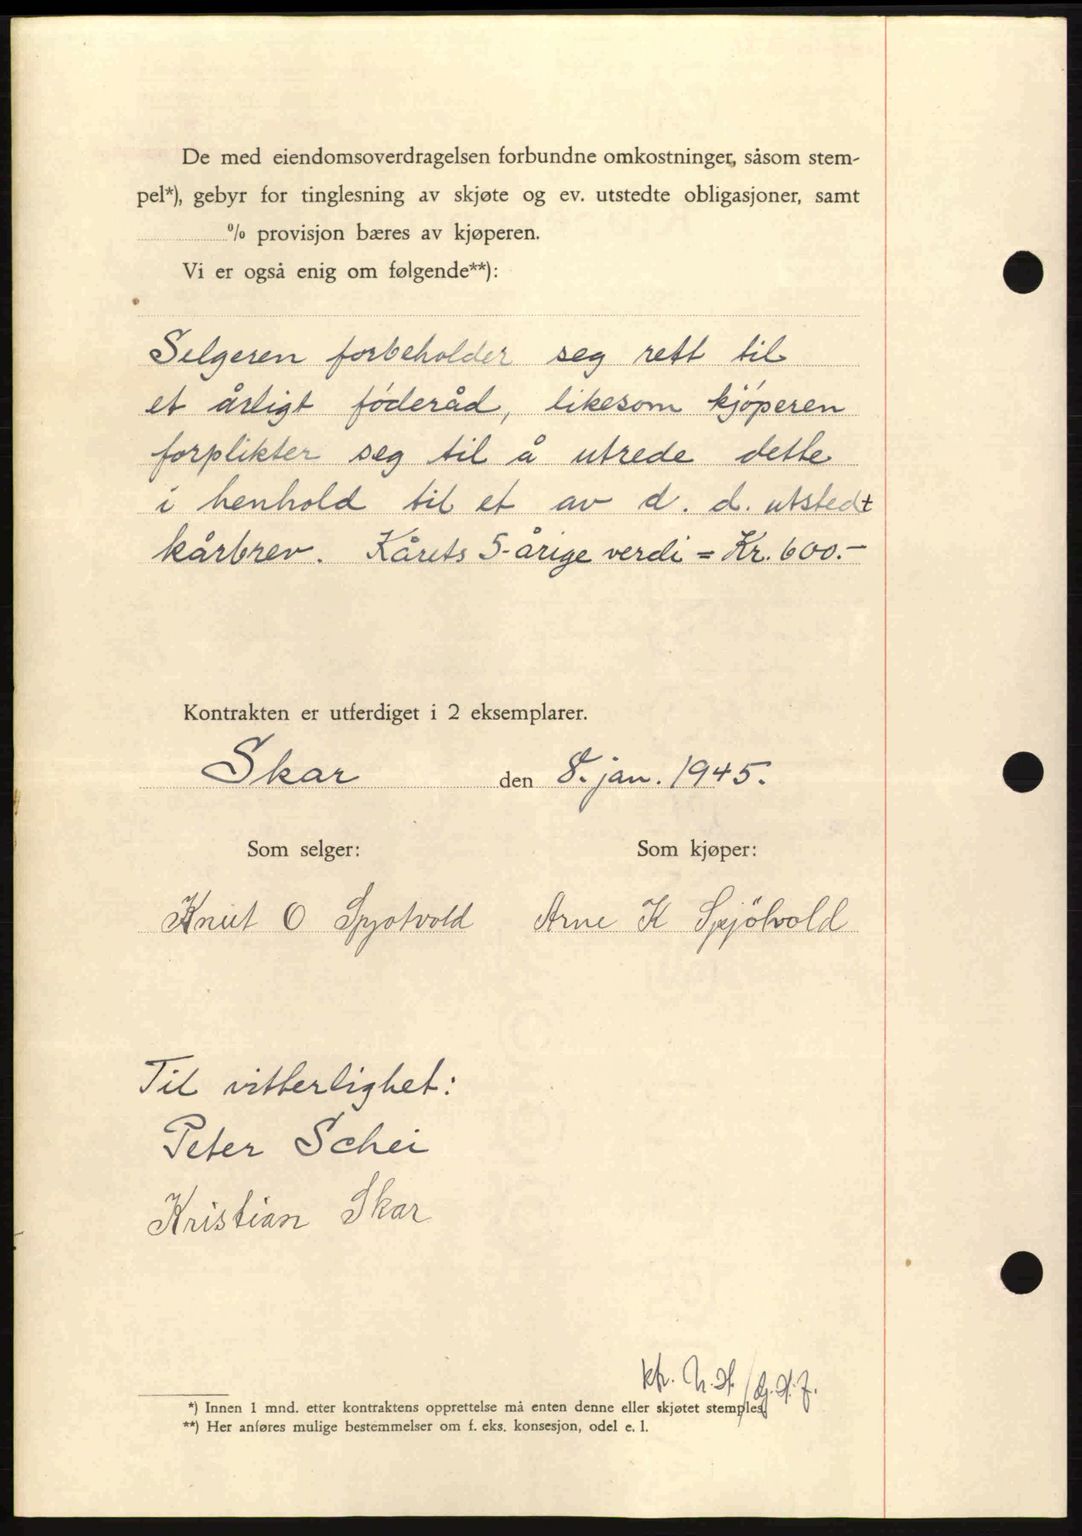 De med eiendomsoverdragelsen forbundne omkostninger, såsom stem-
pel*), gebyr for tinglesning av skjøte og ev. utstedte obligasjoner, samt
............% provisjon bæres av kjøperen.
Vi er også enig om følgende**):
Selgeren forbeholder seg rett til
et årligt föderåd, likesom kjóperen
forplikter seg til å utrede dette
i henhold til et av d. d. utstedt
kårbrev. Kårets 5-årige verdi = Kr. 600.-
Kontrakten er utferdiget i 2 eksemplarer.
Skar den 8. jan. 1945.
Som selger: Som kjøper:
Knut O Spjotvold Arne K Spjötvold
Til vitterlighet:
Peter Schei
Kristian Skar
kfr. N.H./G.H.F.
*) Innen 1 mnd. etter kontraktens opprettelse må enten denne eller skjøtet stemples.
**) Her anføres mulige bestemmelser om f. eks. konsesjon, odel e. l.